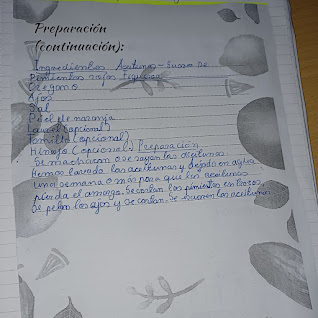 Preparación
(continuación):
Ingredientes Aceitunas - Suosa de
Pimientos rojos
Orégano
Ajos
Sal
Piel de naranja
Laurel (opcional)
Tomillo (opcional)
Hinojo (opcional) Preparación
Se machacan o se rayan las aceitunas
Hemos lavado las aceitunas y dejado en agua
una semana o más para que las aceitunas
pierda el amargo. Se cortan los pimientos en trozos
Se pelan los ajos y se cortan. Se escurren las aceitunas